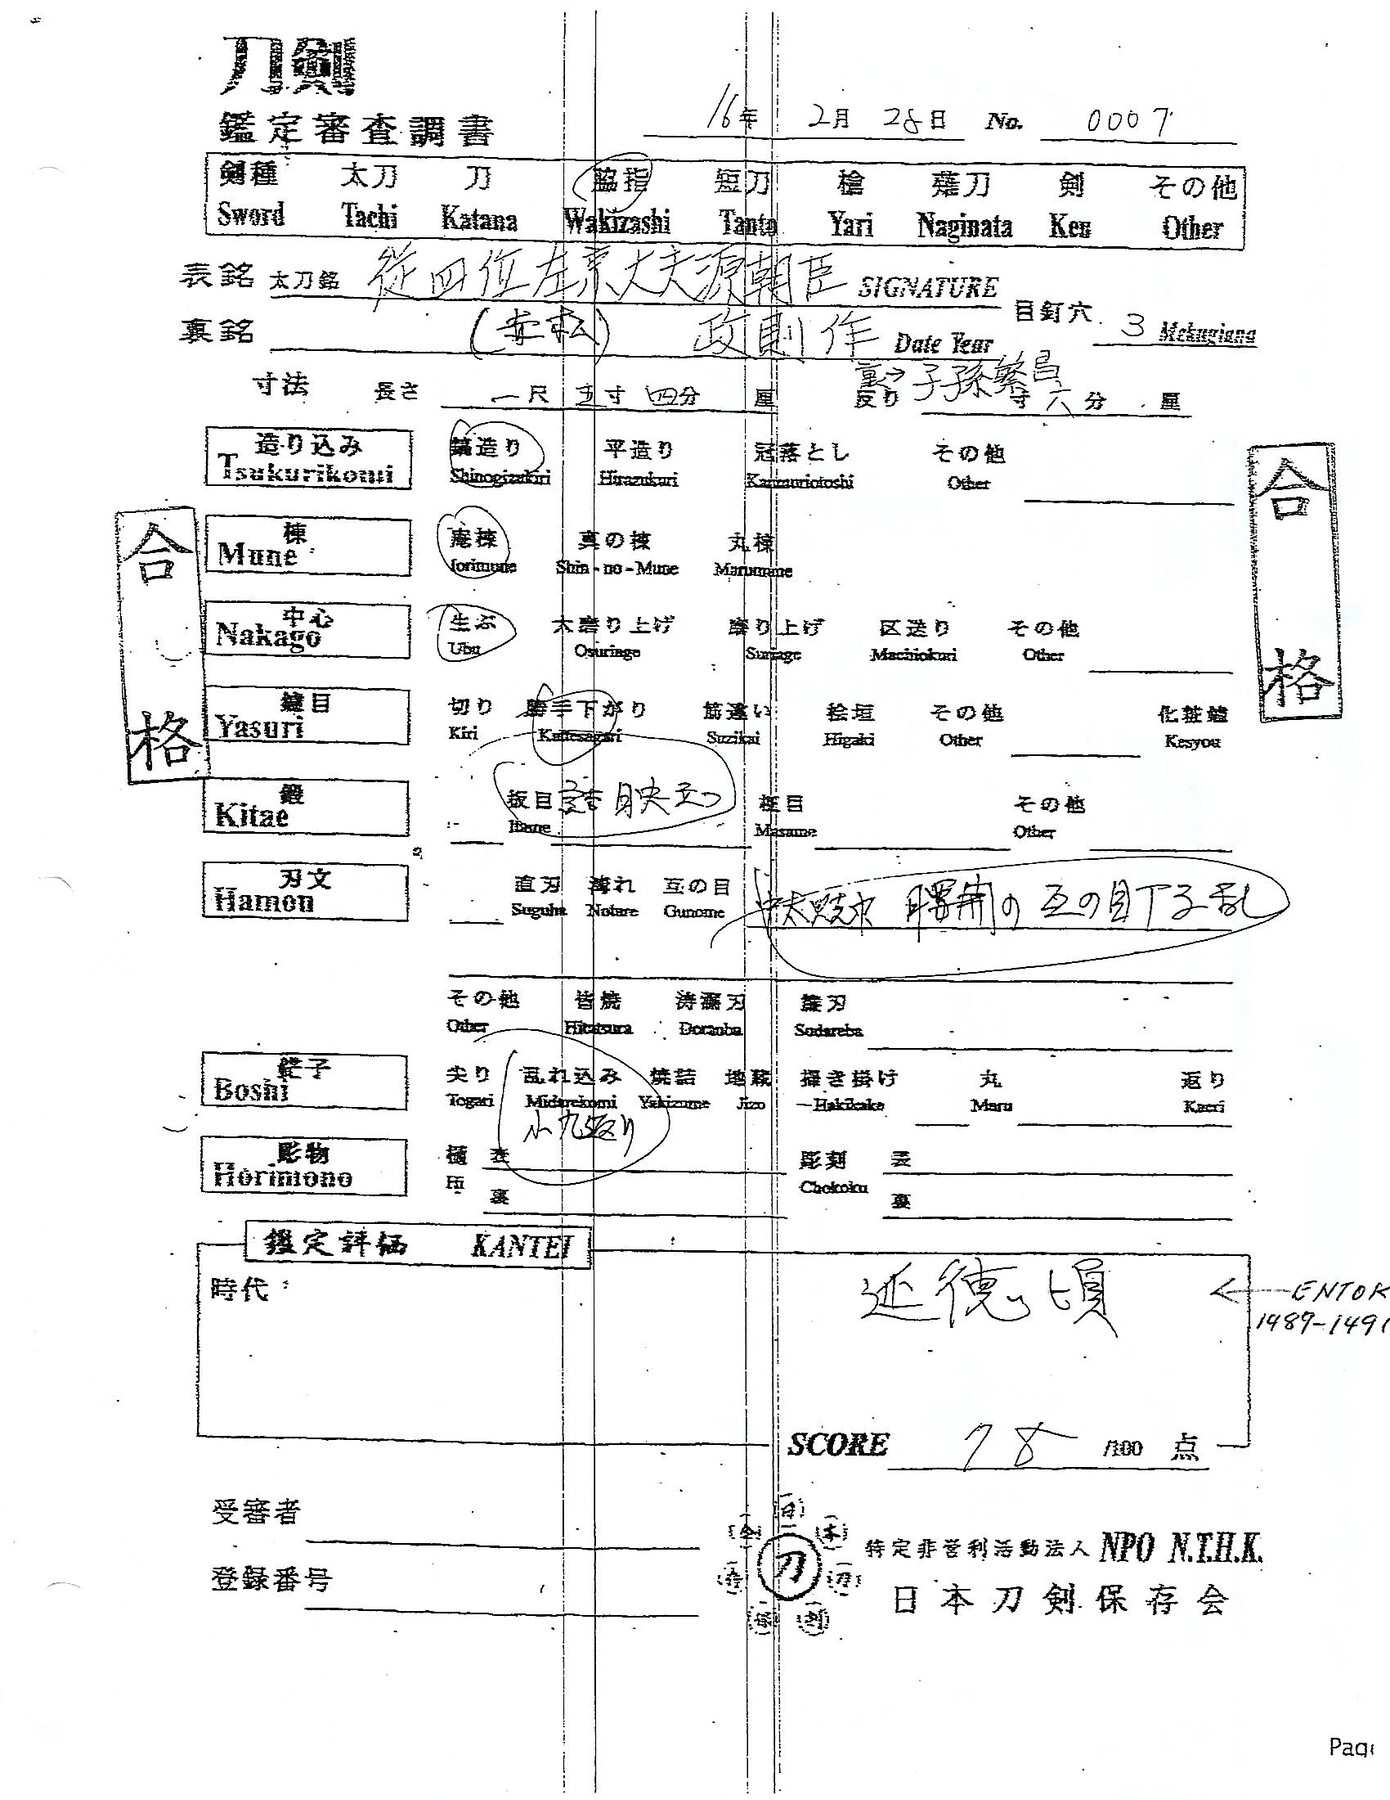 刀剣
鑑定審査調書
16年 2月 28日 No. 0007
剣種 太刀 刀 脇指 短刀 槍 薙刀 剣 その他
Sword Tachi Katana Wakizashi Tanto Yari Naginata Ken Other
表銘 太刀銘 従四位左京大夫源朝臣 SIGNATURE
裏銘 (赤松) 政則作 Date Year 目釘穴 3 Mekugiana
裏→子孫繁昌
寸法 長さ 一尺 五寸 四分 厘 反り 寸 六分 厘
造り込み 鎬造り 平造り 冠落とし その他
Tsukurikomi Shinogizukuri Hirazukuri Kanmuriotoshi Other
棟 庵棟 真の棟 丸棟
Mune Iorimune Shin-no-Mune Marumune
中心 生ぶ 大磨り上げ 磨り上げ 区送り その他
Nakago Ubu Osuriage Suriage Machiokuri Other
鑢目 切り 勝手下がり 筋違い 桧垣 その他 化粧鑢
Yasuri Kiri Kattesagari Suzikai Higaki Other Kesyou
合格
合格
鍛 板目 詰 映立つ 柾目 その他
Kitae Itame Masame Other
刃文 直刃 湾れ 互の目 の 互の目丁子乱
Hamon Suguha Notare Gunome
その他 皆焼 涛瀾刃 簾刃
Other Hitatsura Doranba Sudareba
鋩子 尖り 乱れ込み 焼詰 地蔵 掃き掛け 丸 返り
Boshi Togari Midarekomi Yakizume Jizo Hakikake Maru Kaeri
小丸返り
彫物 樋 表 彫刻 表
Horimono Hi 裏 Chokoku 裏
鑑定評価 KANTEI
時代: 延徳頃 ← ENTOK
1489-1491
SCORE 78 /100 点
受審者
登録番号
日本刀剣保存会
刀
特定非営利活動法人 NPO N.T.H.K.
日本刀剣保存会